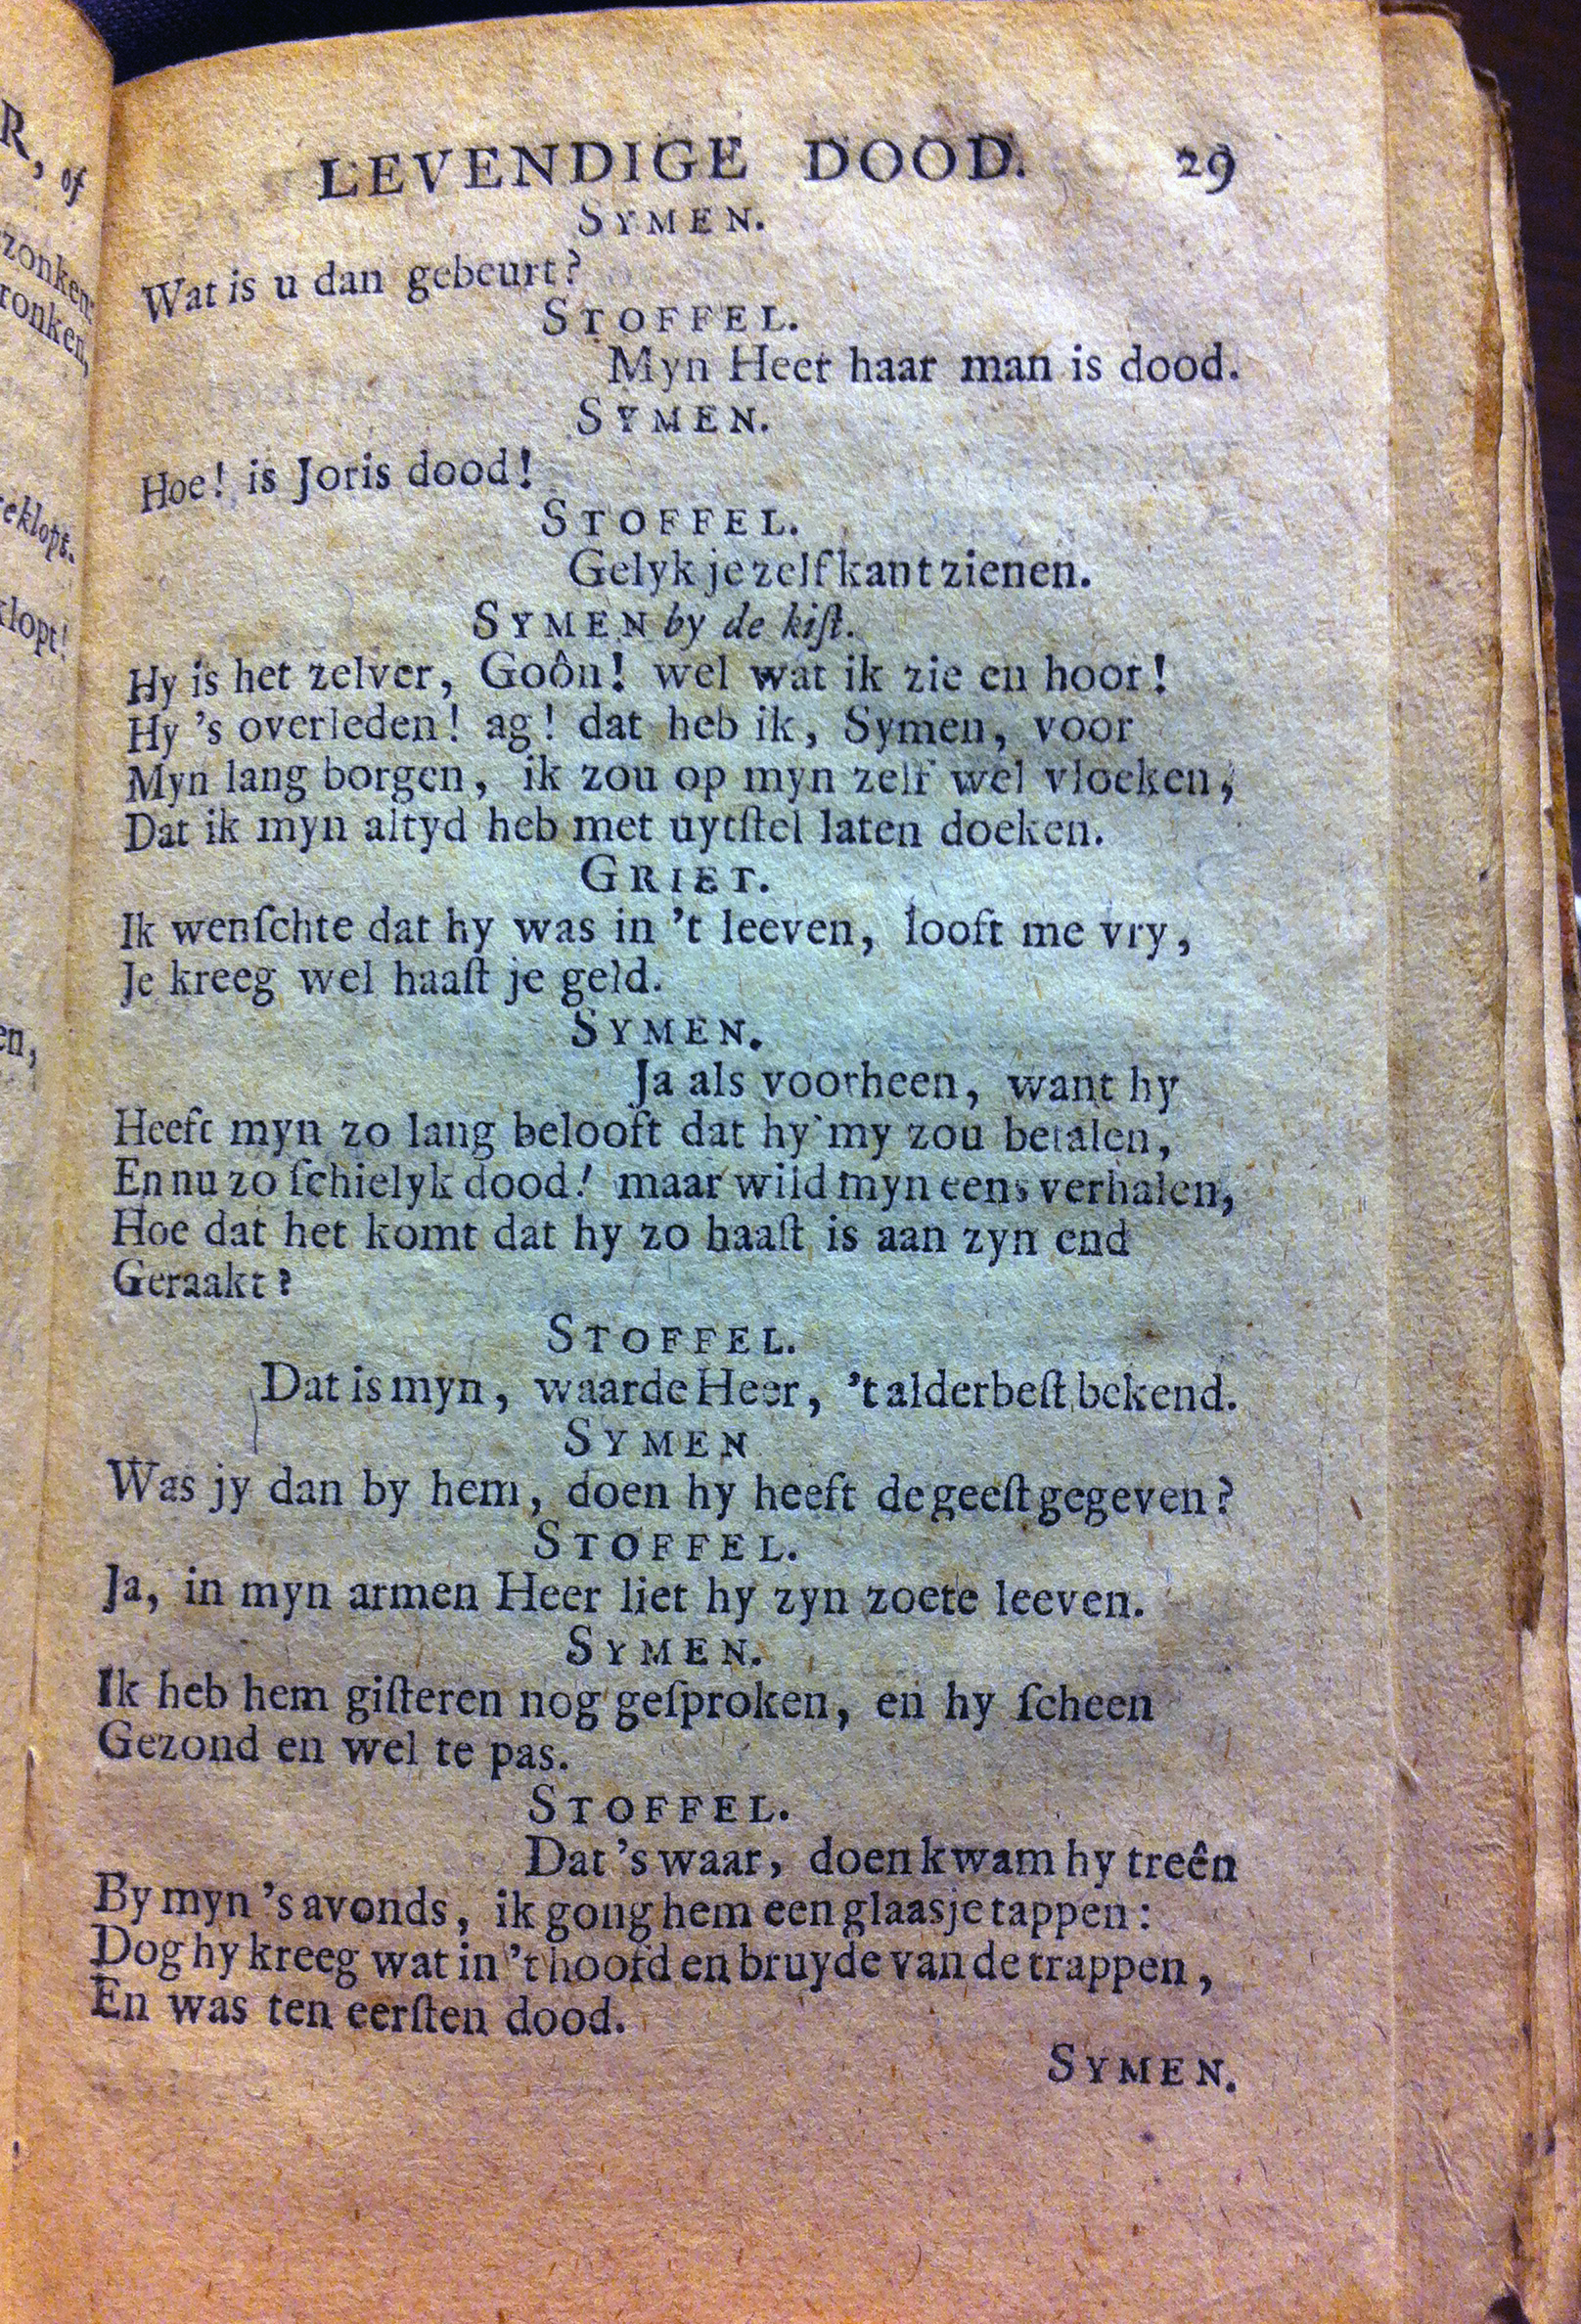 R, of
zonken
ronken,
eklopt.
klopt!
en,
LEVENDIGE DOOD. 29
SYMEN.
Wat is u dan gebeurt?
STOFFEL.
Myn Heer haar man is dood.
SYMEN.
Hoe! is Joris dood!
STOFFEL.
Gelyk je zelf kant zienen.
SYMEN by de kiſt.
Hy is het zelver, Goôn! wel wat ik zie en hoor!
Hy 's overleden! ag! dat heb ik, Symen, voor
Myn lang borgen, ik zou op myn zelf wel vloeken,
Dat ik myn altyd heb met uytſtel laten doeken.
GRIET.
Ik wenſchte dat hy was in 't leeven, looft me vry,
Je kreeg wel haaſt je geld.
SYMEN.
Ja als voorheen, want hy
Heeft myn zo lang belooft dat hy my zou betalen,
En nu zo ſchielyk dood! maar wild myn eens verhalen,
Hoe dat het komt dat hy zo haaſt is aan zyn end
Geraakt?
STOFFEL.
Dat is myn, waarde Heer, 't alderbeſt bekend.
SYMEN
Was jy dan by hem, doen hy heeft de geeſt gegeven?
STOFFEL.
Ja, in myn armen Heer liet hy zyn zoete leeven.
SYMEN.
Ik heb hem giſteren nog geſproken, en hy ſcheen
Gezond en wel te pas.
STOFFEL.
Dat 's waar, doen kwam hy treên
By myn 's avonds, ik gong hem een glaasje tappen:
Dog hy kreeg wat in 't hoofd en bruyde van de trappen,
En was ten eerſten dood.
SYMEN.